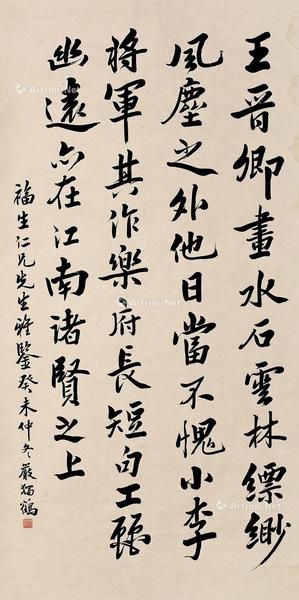 王晋卿畫水石雲林縹緲
風塵之外他日當不愧小李
將軍其作樂府長短句工
幽遠亦在江南諸賢之上
福生仁兄先生雅鑒癸未仲冬嚴獨鶴
Artron.Net
Artron.Net
Artron.Net
Artron.Net